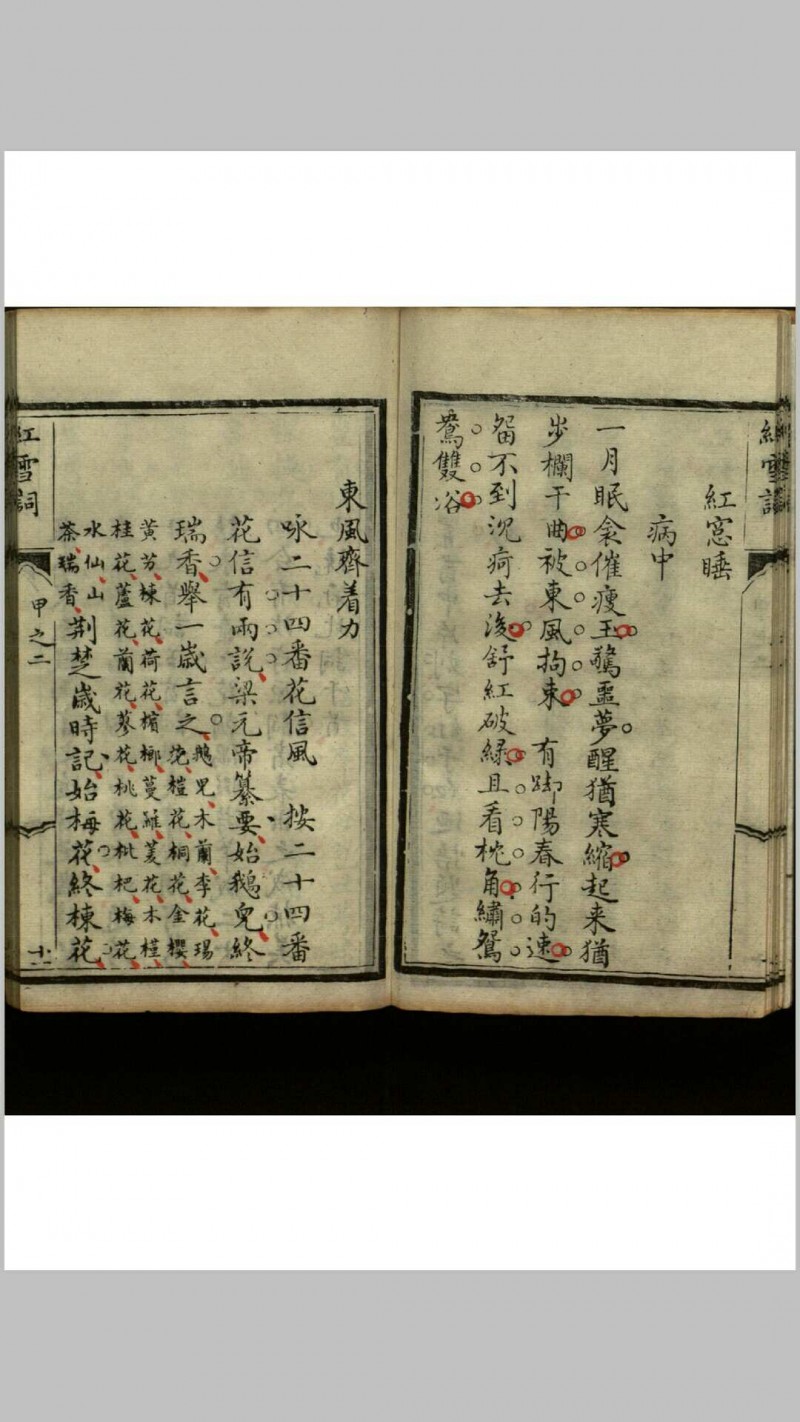 紅窓睡
病中
一月眠衾催瘦玉驚噩夢醒猶寒縮起来猶
步欄干曲被東風拘束　有腳陽春行的速
留不到沉疴去後舒紅破綠且看枕角繡鴛
鴦雙浴
東風齊着力
咏二十四番花信風　按二十四番
花信有兩說梁元帝纂要始鵝兒終
瑞香舉一歲言之鵝兒木蘭李花瑒
花榿花桐花金櫻
黃芳楝花荷花檳榔蔓羅菱花木槿
桂花蘆花蘭花蓼花桃花枇杷梅花
水仙山
茶瑞香荆楚歲時記始梅花終楝花
紅雪詞
甲之二
十一